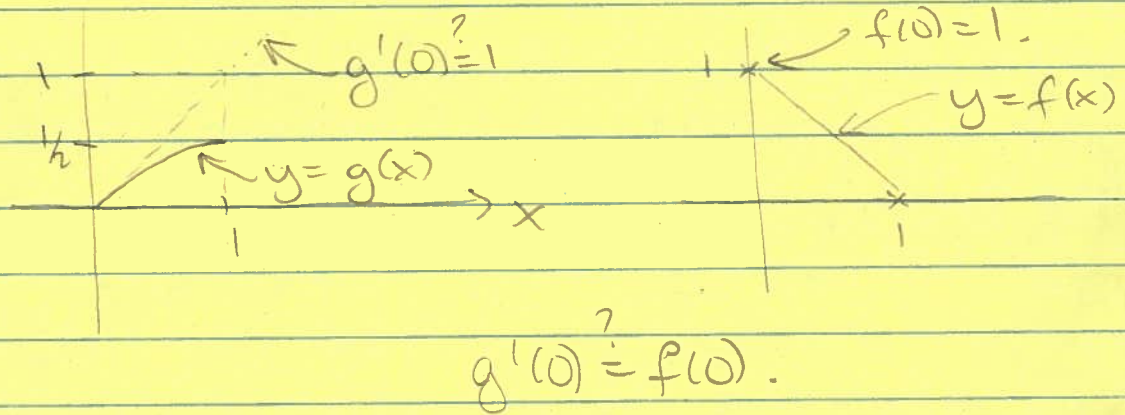 g'(0) ≟ 1
1
1/2
y = g(x)
x
1
f(0) = 1.
1
y = f(x)
1
g'(0) ≟ f(0).